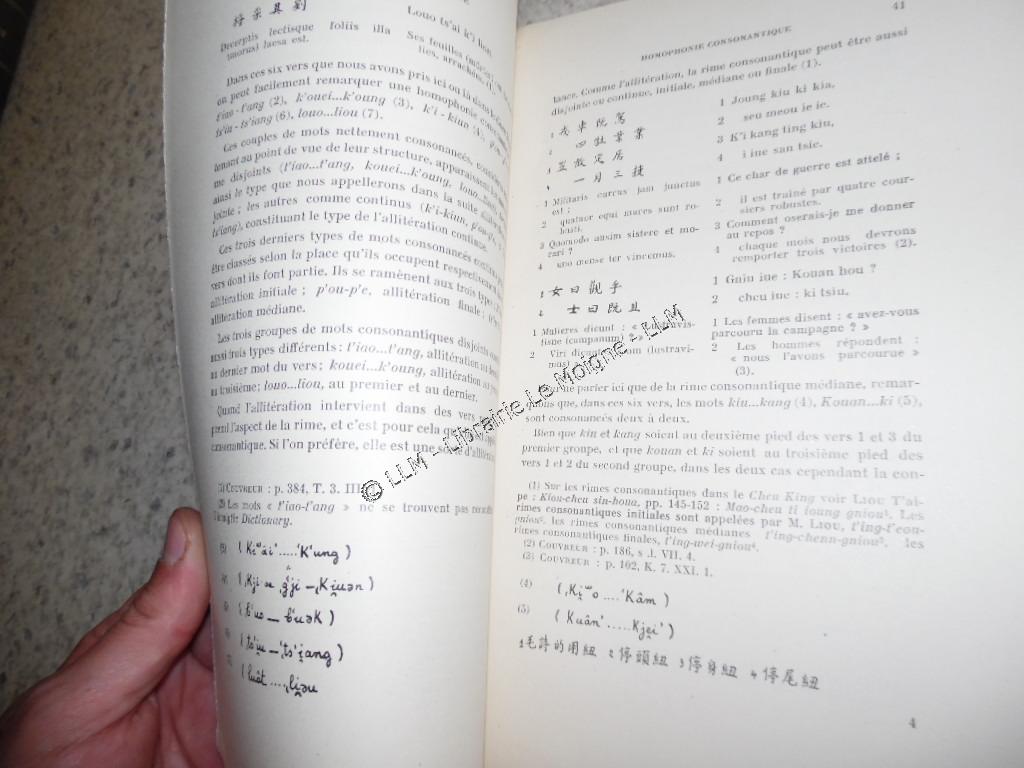 捋采其劉
Louo ts'ai k'i liou.
Decerptis lectisque foliis illa
(morus) laesa est.
Ses feuilles
Dans ces six vers que nous avons pris ici ou là dans
on peut facilement remarquer une homophonie
t'iao-t'ang (2), k'ouei...k'oung (3), k'i-kiun (4),
ts'iu-ts'iang (6), louo...liou (7).
Ces couples de mots nettement consonancés,
tenant au point de vue de leur structure, apparaissent
me disjoints (t'iao...t'ang, kouei...k'oung, louo
ainsi le type que nous appellerons dans la suite
jointe ; les autres comme continus (k'i-kiun, p'ou-p'e,
ts'iang), constituant le type de l'allitération continue.
Ces trois derniers types de mots consonancés
être classés selon la place qu'ils occupent respectivement
vers dont ils font partie. Ils se ramènent aux trois types
allitération initiale ; p'ou-p'e, allitération finale ;
allitération médiane.
Les trois groupes de mots consonantiques disjoints
aussi trois types différents : t'iao...t'ang, allitération
au dernier mot du vers ; kouei...k'oung, allitération
au troisième ; louo...liou, au premier et au dernier.
Quand l'allitération intervient dans des vers
prend l'aspect de la rime, et c'est pour cela que
consonantique. Si l'on préfère, elle est une sorte d'allitération
(1) COUVREUR : p. 384, T. 3. III
(2) Les mots « t'iao-t'ang » ne se trouvent pas
Dictionary.
K'ung )
Ki̯uən )
( luât
41
HOMOPHONIE CONSONANTIQUE
lance. Comme l'allitération, la rime consonantique peut être aussi
disjointe ou continue, initiale, médiane ou finale (1).
1 戎車既駕
2 四牡業業
3 豈敢定居
4 一月三捷
1 Joung kiu ki kia,
2 seu meou ie ie.
3 K'i kang ting kiu,
4 i iue san tsie.
1 Militaris carrus jam junctus
est ;
2 quatuor equi mares sunt ro-
busti.
3 Quomodo ausim sistere et mo-
rari ?
4 uno mense ter vincemus.
1 Ce char de guerre est attelé ;
2 il est traîné par quatre cour-
siers robustes.
3 Comment oserais-je me donner
au repos ?
4 chaque mois nous devrons
remporter trois victoires (2).
1 女曰觀乎
2 士曰既且
1 Gniu iue : Kouan hou ?
2 cheu iue : ki tsiu,
1 Mulieres dicunt :
tisne (campanum) ? »
2 Viri (lustravi-
mus)
1 Les femmes disent : « avez-vous
parcouru la campagne ? »
2 Les hommes répondent :
« nous l'avons parcourue »
(3).
parler ici que de la rime consonantique médiane, remar-
quons que, dans ces six vers, les mots kiu...kang (4), Kouan...ki (5),
sont consonancés deux à deux.
Bien que kiu et kang soient au deuxième pied des vers 1 et 3 du
premier groupe, et que kouan et ki soient au troisième pied des
vers 1 et 2 du second groupe, dans les deux cas cependant la con-
(1) Sur les rimes consonantiques dans le Cheu King voir LIOU T'ai-
pe : Kiou-cheu sin-houa, pp. 145-152 : Mao-cheu ti ioung gniou¹. Les
rimes consonantiques initiales sont appelées par M. LIOU, t'ing-t'eou-
gniou², les rimes consonantiques médianes t'ing-chenn-gniou³, les
rimes consonantiques finales, t'ing-wei-gniou⁴.
(2) COUVREUR : p. 186, s .l. VII. 4.
(3) COUVREUR : p. 102, K. 7. XXI. 1.
(4)
'Kâm )
(5) ( Kuân' ..... Kjei' )
1毛詩的用紐 2停頭紐 3停身紐 4停尾紐
4
© LLM - Librairie Le Moigne - LLM